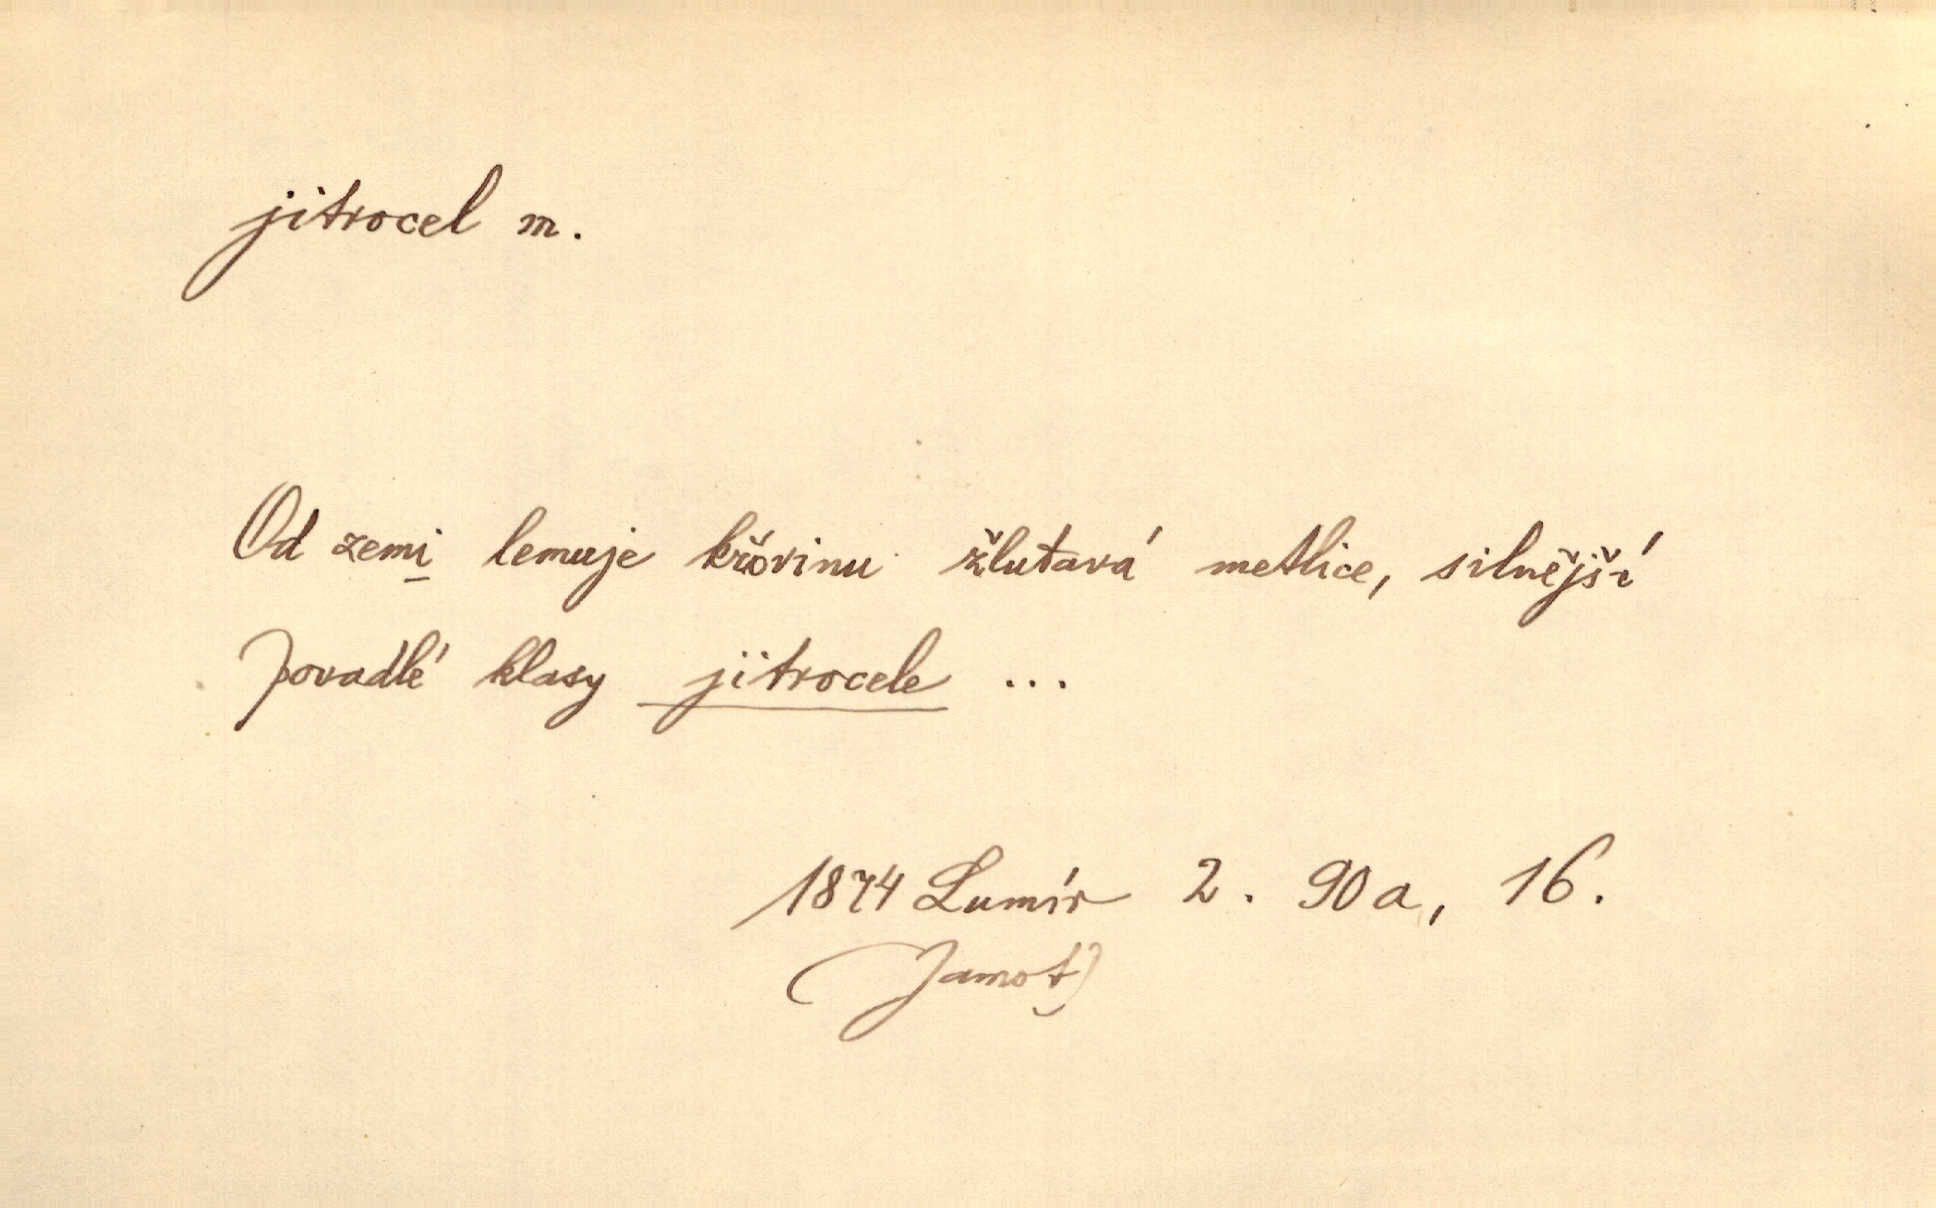 jitrocel m.
Od zemi lemuje křovinu žlutavá metlice, silnější
povadlé klasy jitrocele ...
1874 Lumír 2. 90a, 16.
(Jamot)